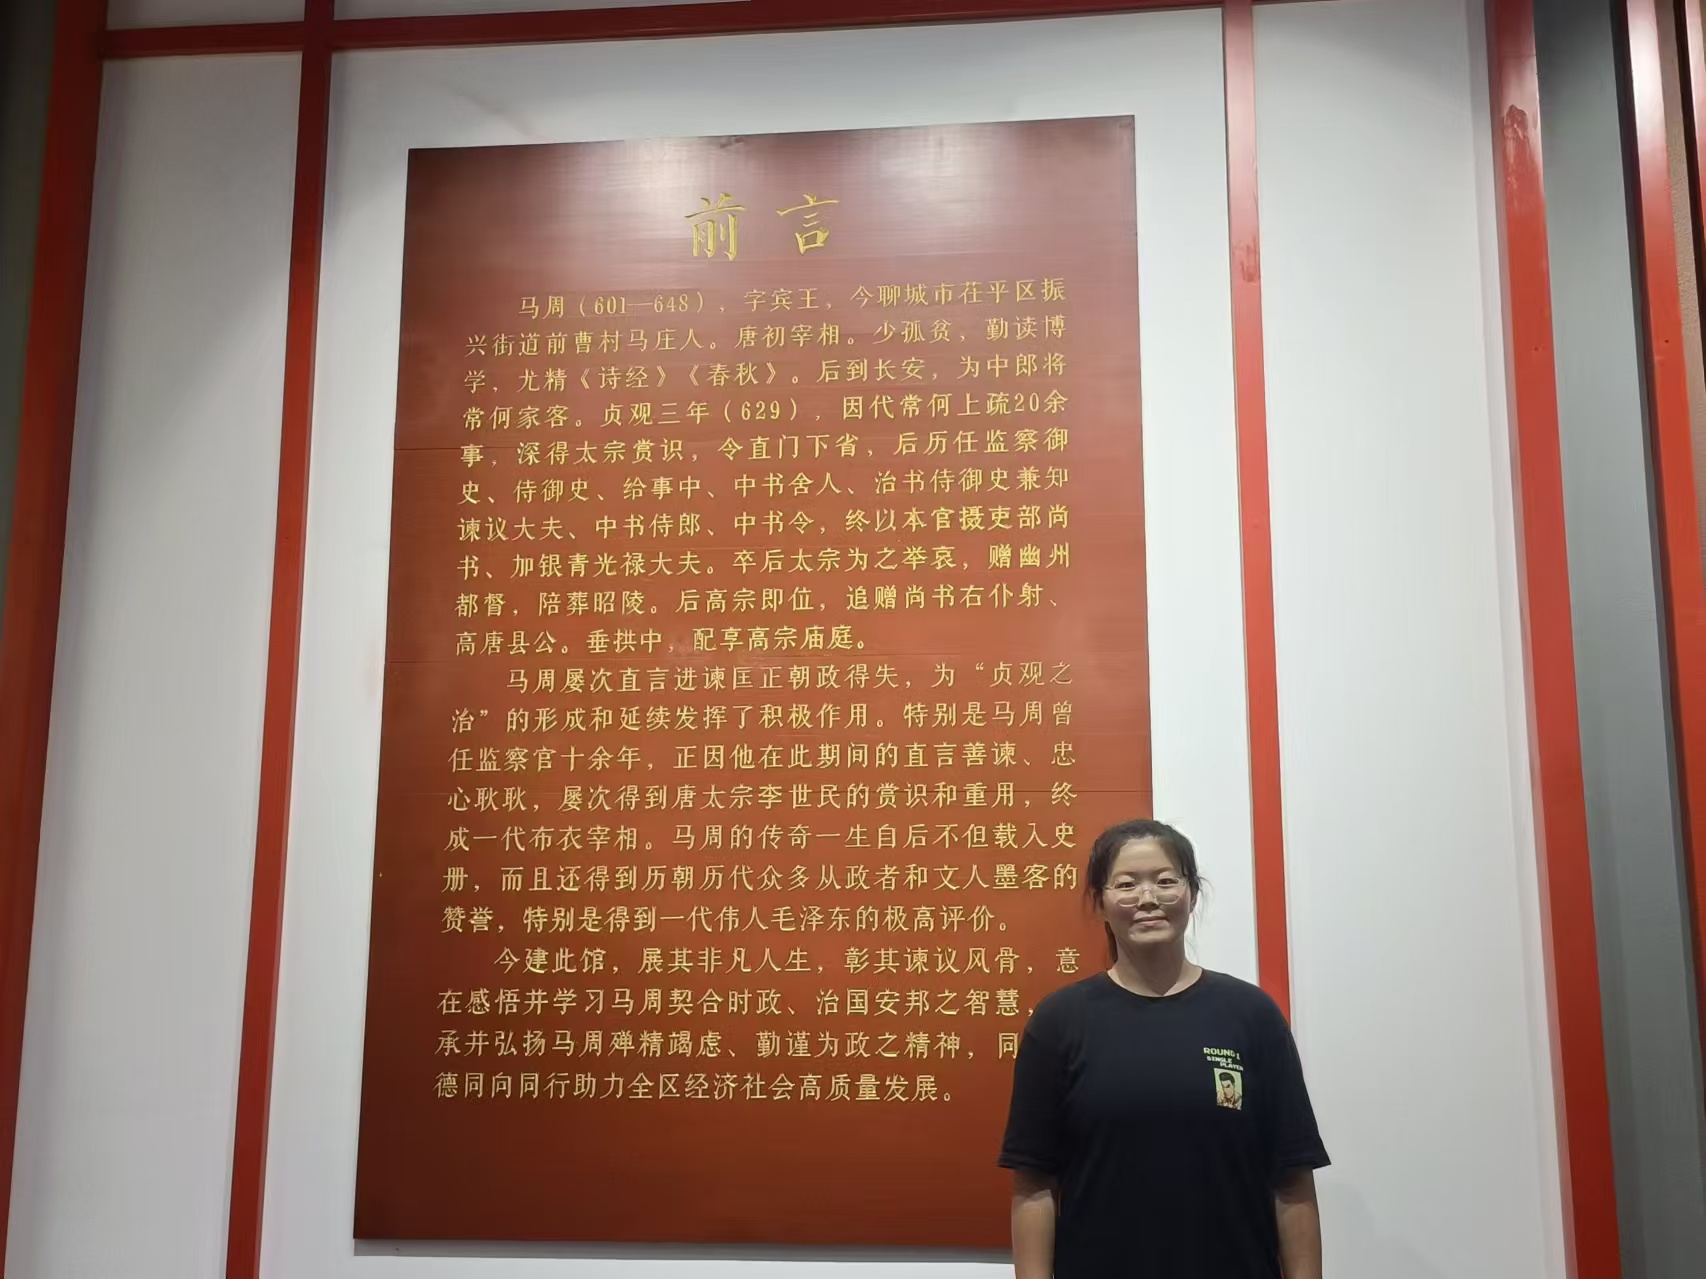 前言
马周（601—648），字宾王，今聊城市茌平区振
兴街道前曹村马庄人。唐初宰相。少孤贫，勤读博
学，尤精《诗经》《春秋》。后到长安，为中郎将
常何家客。贞观三年（629），因代常何上疏20余
事，深得太宗赏识，令直门下省，后历任监察御
史、侍御史、给事中、中书舍人、治书侍御史兼知
谏议大夫、中书侍郎、中书令，终以本官摄吏部尚
书、加银青光禄大夫。卒后太宗为之举哀，赠幽州
都督，陪葬昭陵。后高宗即位，追赠尚书右仆射、
高唐县公。垂拱中，配享高宗庙庭。
马周屡次直言进谏匡正朝政得失，为“贞观之
治”的形成和延续发挥了积极作用。特别是马周曾
任监察官十余年，正因他在此期间的直言善谏、忠
心耿耿，屡次得到唐太宗李世民的赏识和重用，终
成一代布衣宰相。马周的传奇一生自后不但载入史
册，而且还得到历朝历代众多从政者和文人墨客的
赞誉，特别是得到一代伟人毛泽东的极高评价。
今建此馆，展其非凡人生，彰其谏议风骨，意
在感悟并学习马周契合时政、治国安邦之智慧，
承并弘扬马周殚精竭虑、勤谨为政之精神，同
德同向同行助力全区经济社会高质量发展。
ROUND 1
SINGLE
PLAYER